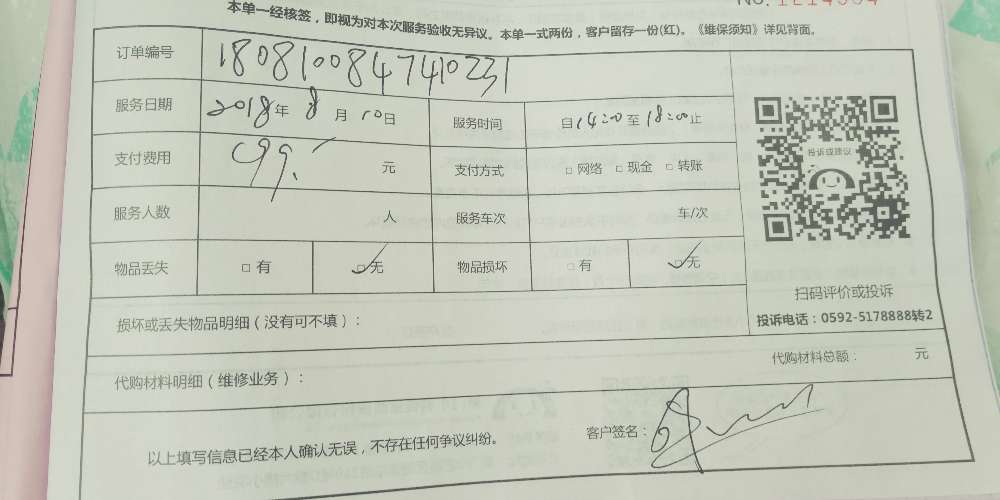 本单一经核签，即视为对本次服务验收无异议。本单一式两份，客户留存一份(红)。《维保须知》详见背面。
订单编号 180810084740231
服务日期 2018年 8月 10日 服务时间 自14:00至18:00止
支付费用 99. 元 支付方式 □ 网络 □ 现金 □ 转账
投诉或建议
服务人数 人 服务车次 车/次
物品丢失 □ 有 □ 无 物品损坏 □ 有 □ 无
扫码评价或投诉
损坏或丢失物品明细（没有可不填）：
投诉电话：0592-5178888转2
代购材料明细（维修业务）： 代购材料总额： 元
以上填写信息已经本人确认无误，不存在任何争议纠纷。 客户签名：